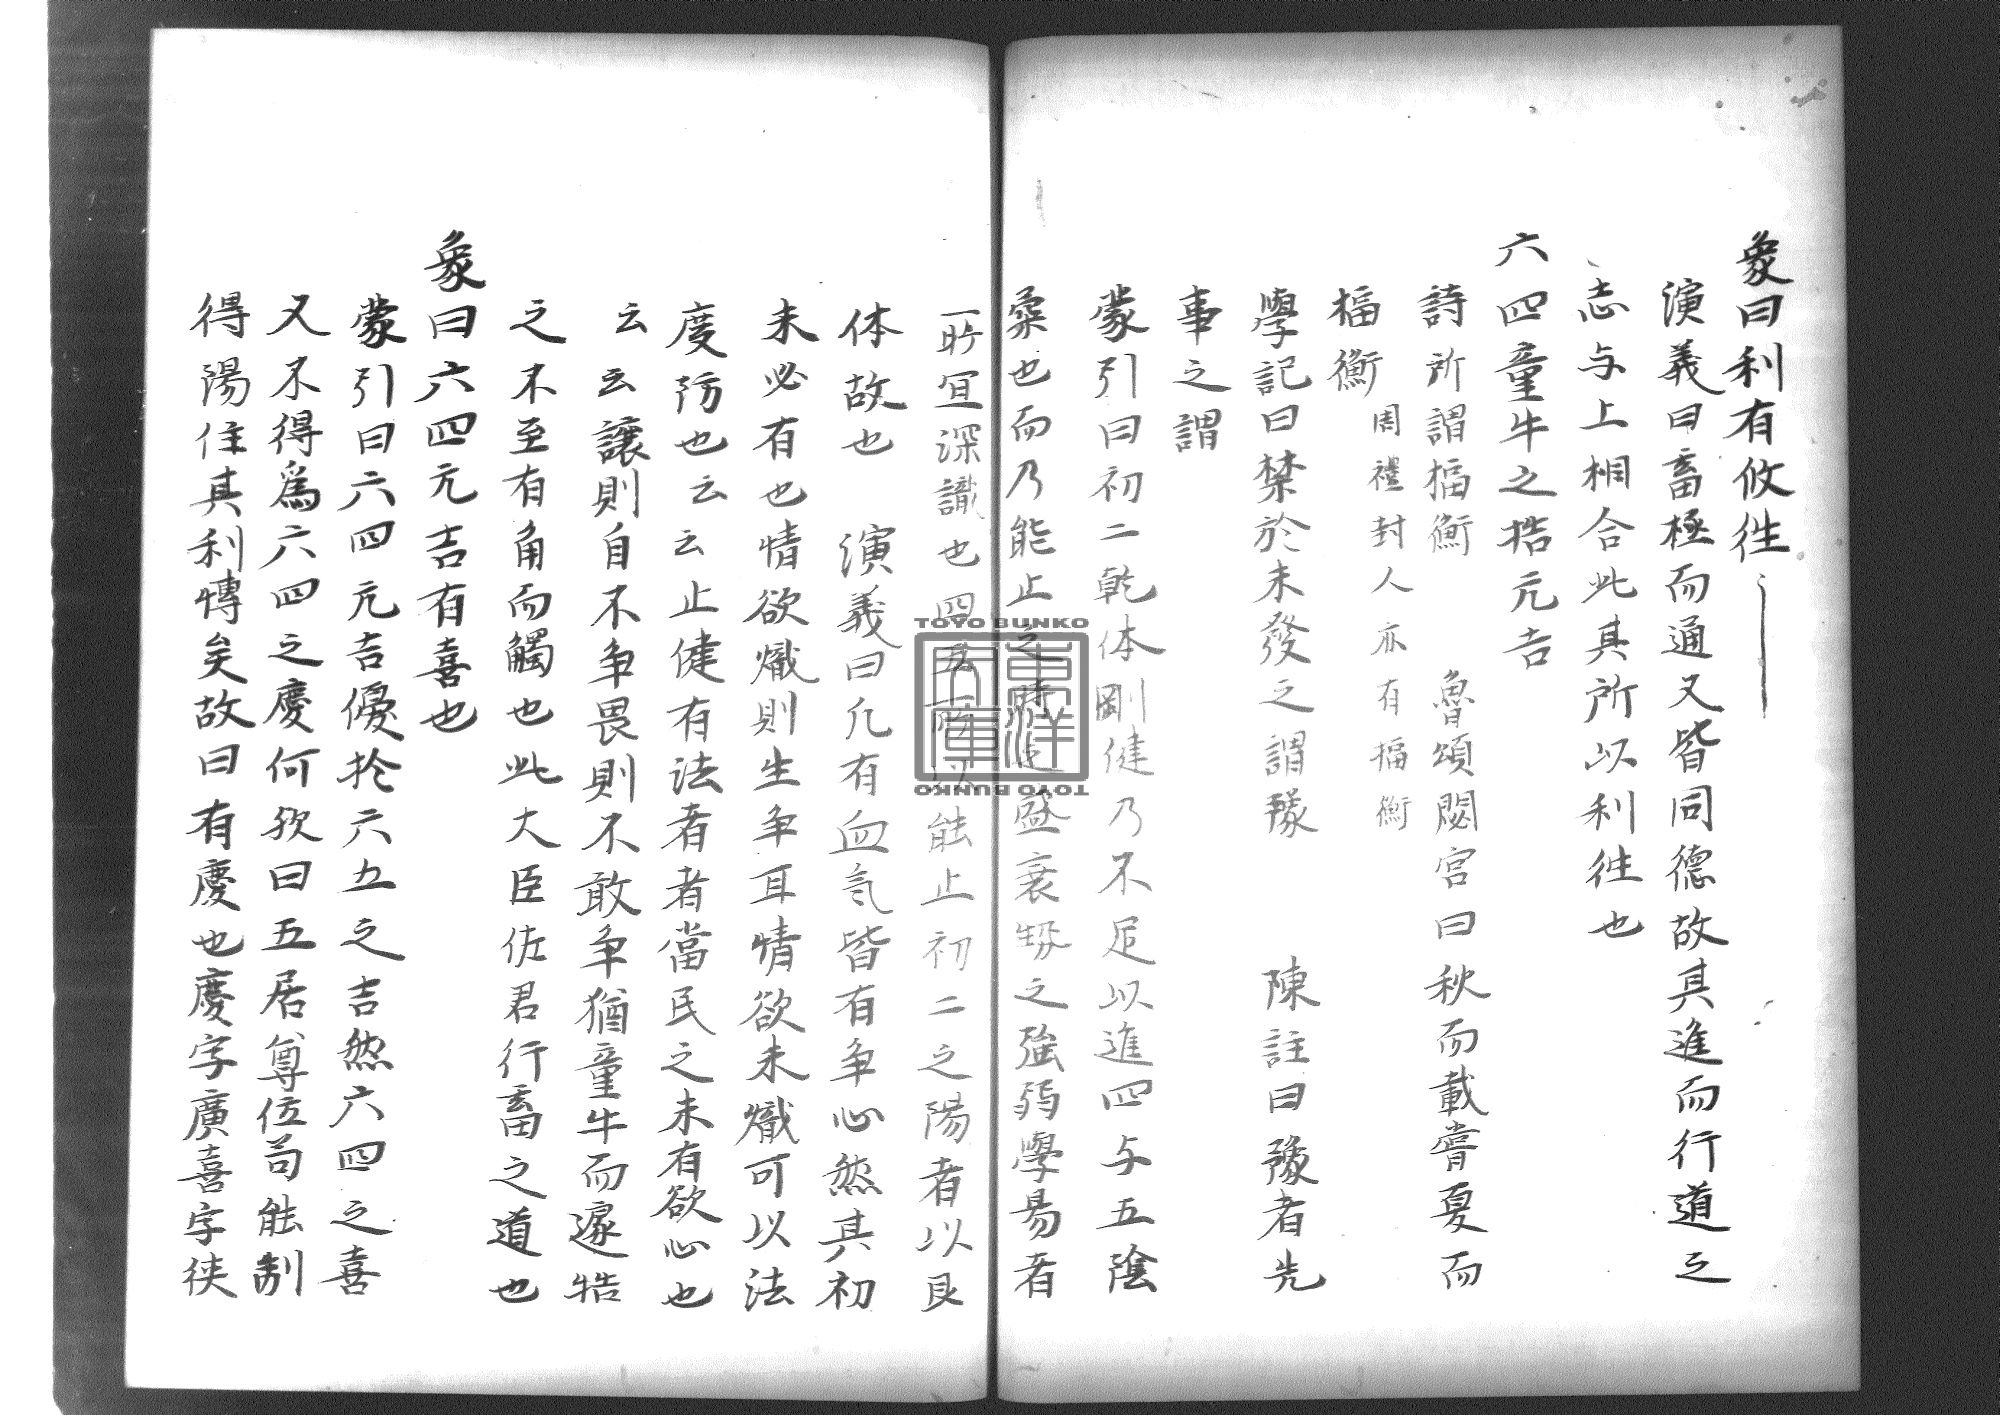 象曰利有攸往
演義曰畜極而通又皆同德故其進而行道之
志与上相合此其所以利往也
六四童牛之牿元吉
詩所謂楅衡　魯頌閟宮曰秋而載嘗夏而
楅衡周禮封人亦有楅衡
學記曰禁於未發之謂豫　陳註曰豫者先
事之謂
蒙引曰初二乾体剛健乃不足以進四与五陰
柔也而乃能止之時運盛衰勢之強弱學易者
所宜深識也四五所以能止初二之陽者以艮
体故也　演義曰凡有血氣皆有争心然其初
未必有也情欲熾則生争耳情欲未熾可以法
度防也云云止健有法者者當民之未有欲心也
云云讓則自不争畏則不敢争猶童牛而遽牿
之不至有角而觸也此大臣佐君行畜之道也
象曰六四元吉有喜也
蒙引曰六四元吉優於六五之吉然六四之喜
又不得爲六四之慶何欤曰五居尊位苟能制
得陽住其利慱矣故曰有慶也慶字廣喜字狹
TOYO BUNKO
東洋文庫
TOYO BUNKO